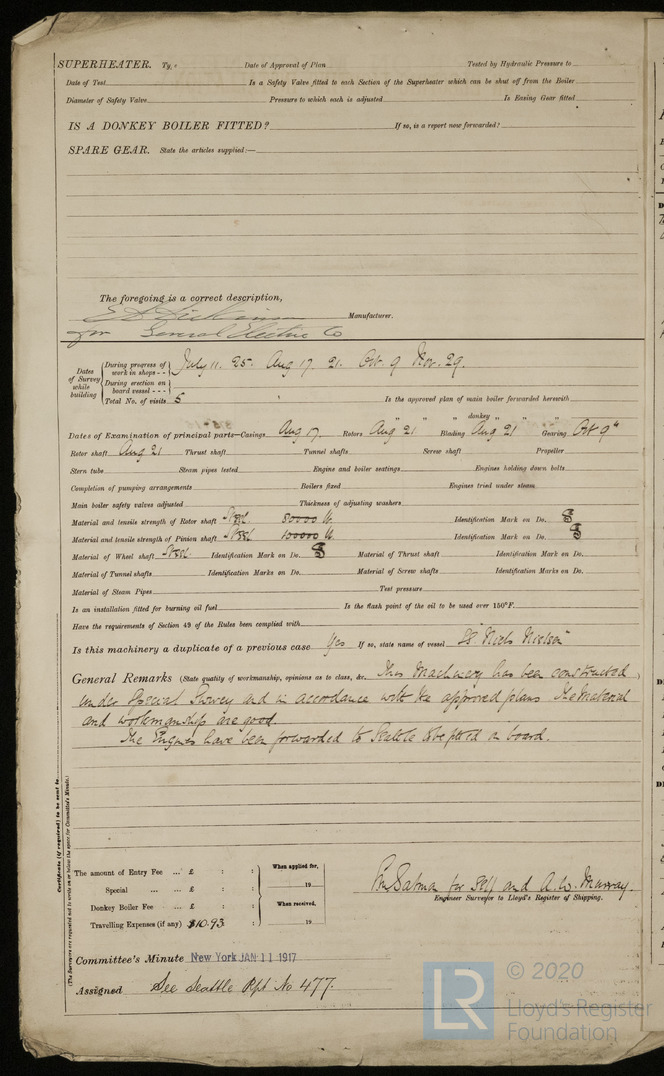 SUPERHEATER. Date of Approval of Plan Tested by Hydraulic Pressure to
Date of Test Is a Safety Valve fitted to each Section of the Superheater which can be shut off from the Boiler
Diameter of Safety Valve Pressure to which each is adjusted Is Easing Gear fitted
IS A DONKEY BOILER FITTED? If so, is a report now forwarded?
SPARE GEAR. State the articles supplied:—
The foregoing is a correct description,
Manufacturer.
for General Electric Co
Dates of Survey while building
During progress of work in shops - - July 11. 25. Aug 17. 21. Oct. 9 Nov. 29.
During erection on board vessel - - -
Total No. of visits 5 Is the approved plan of main boiler forwarded herewith
" " donkey " " "
Dates of Examination of principal parts—Casings Aug 17. Rotors Aug 21 Blading Aug 21 Gearing Oct 9
Rotor shaft Aug 21 Thrust shaft Tunnel shafts Screw shaft Propeller
Stern tube Steam pipes tested Engine and boiler seatings Engines holding down bolts
Completion of pumping arrangements Boilers fixed Engines tried under steam
Main boiler safety valves adjusted Thickness of adjusting washers
Material and tensile strength of Rotor shaft Steel 80000 lb. Identification Mark on Do.
Material and tensile strength of Pinion shaft Steel 100000 lb. Identification Mark on Do.
Material of Wheel shaft Steel. Identification Mark on Do. Material of Thrust shaft Identification Mark on Do.
Material of Tunnel shafts Identification Marks on Do. Material of Screw shafts Identification Marks on Do.
Material of Steam Pipes Test pressure
Is an installation fitted for burning oil fuel Is the flash point of the oil to be used over 150°F.
Have the requirements of Section 49 of the Rules been complied with
Is this machinery a duplicate of a previous case Yes If so, state name of vessel SS "Niels Nielsen"
General Remarks (State quality of workmanship, opinions as to class, &c. This Machinery has been constructed
under Special Survey and in accordance with the approved plans The Material
and workmanship are good.
The Engines have been forwarded to Seattle to be fitted on board.
Certificate (if required) to be sent to
(The Surveyors are requested not to write on or below the space for Committee's Minute.)
The amount of Entry Fee ... £ : : When applied for,
Special ... ... £ : : 19
Donkey Boiler Fee ... £ : : When received,
Travelling Expenses (if any) $10.93 19
for Self and A. W. Murray.
Engineer Surveyor to Lloyd's Register of Shipping.
Committee's Minute New York JAN 11 1917
Assigned See Seattle Rpt No 477.
LR © 2020
Lloyd's Register
Foundation